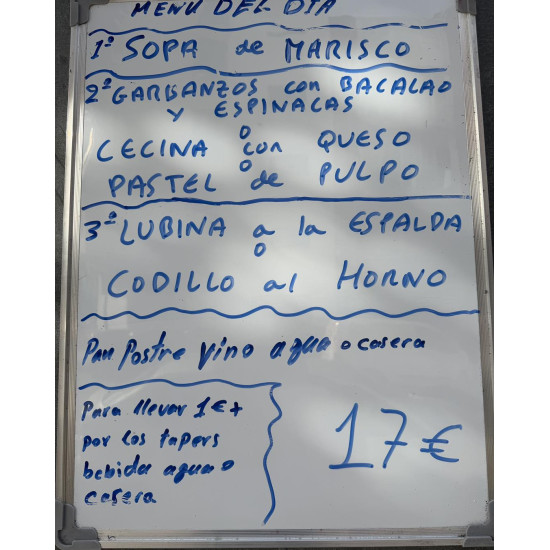 MENU DEL DIA
1º SOPA de MARISCO
2º GARBANZOS con BACALAO
Y ESPINACAS
o
CECINA con QUESO
o
PASTEL de PULPO
3º LUBINA a la ESPALDA
o
CODILLO al HORNO
Pan Postre Vino agua o casera
Para llevar 1€ +
por los tapers
bebida agua o
casera
17€